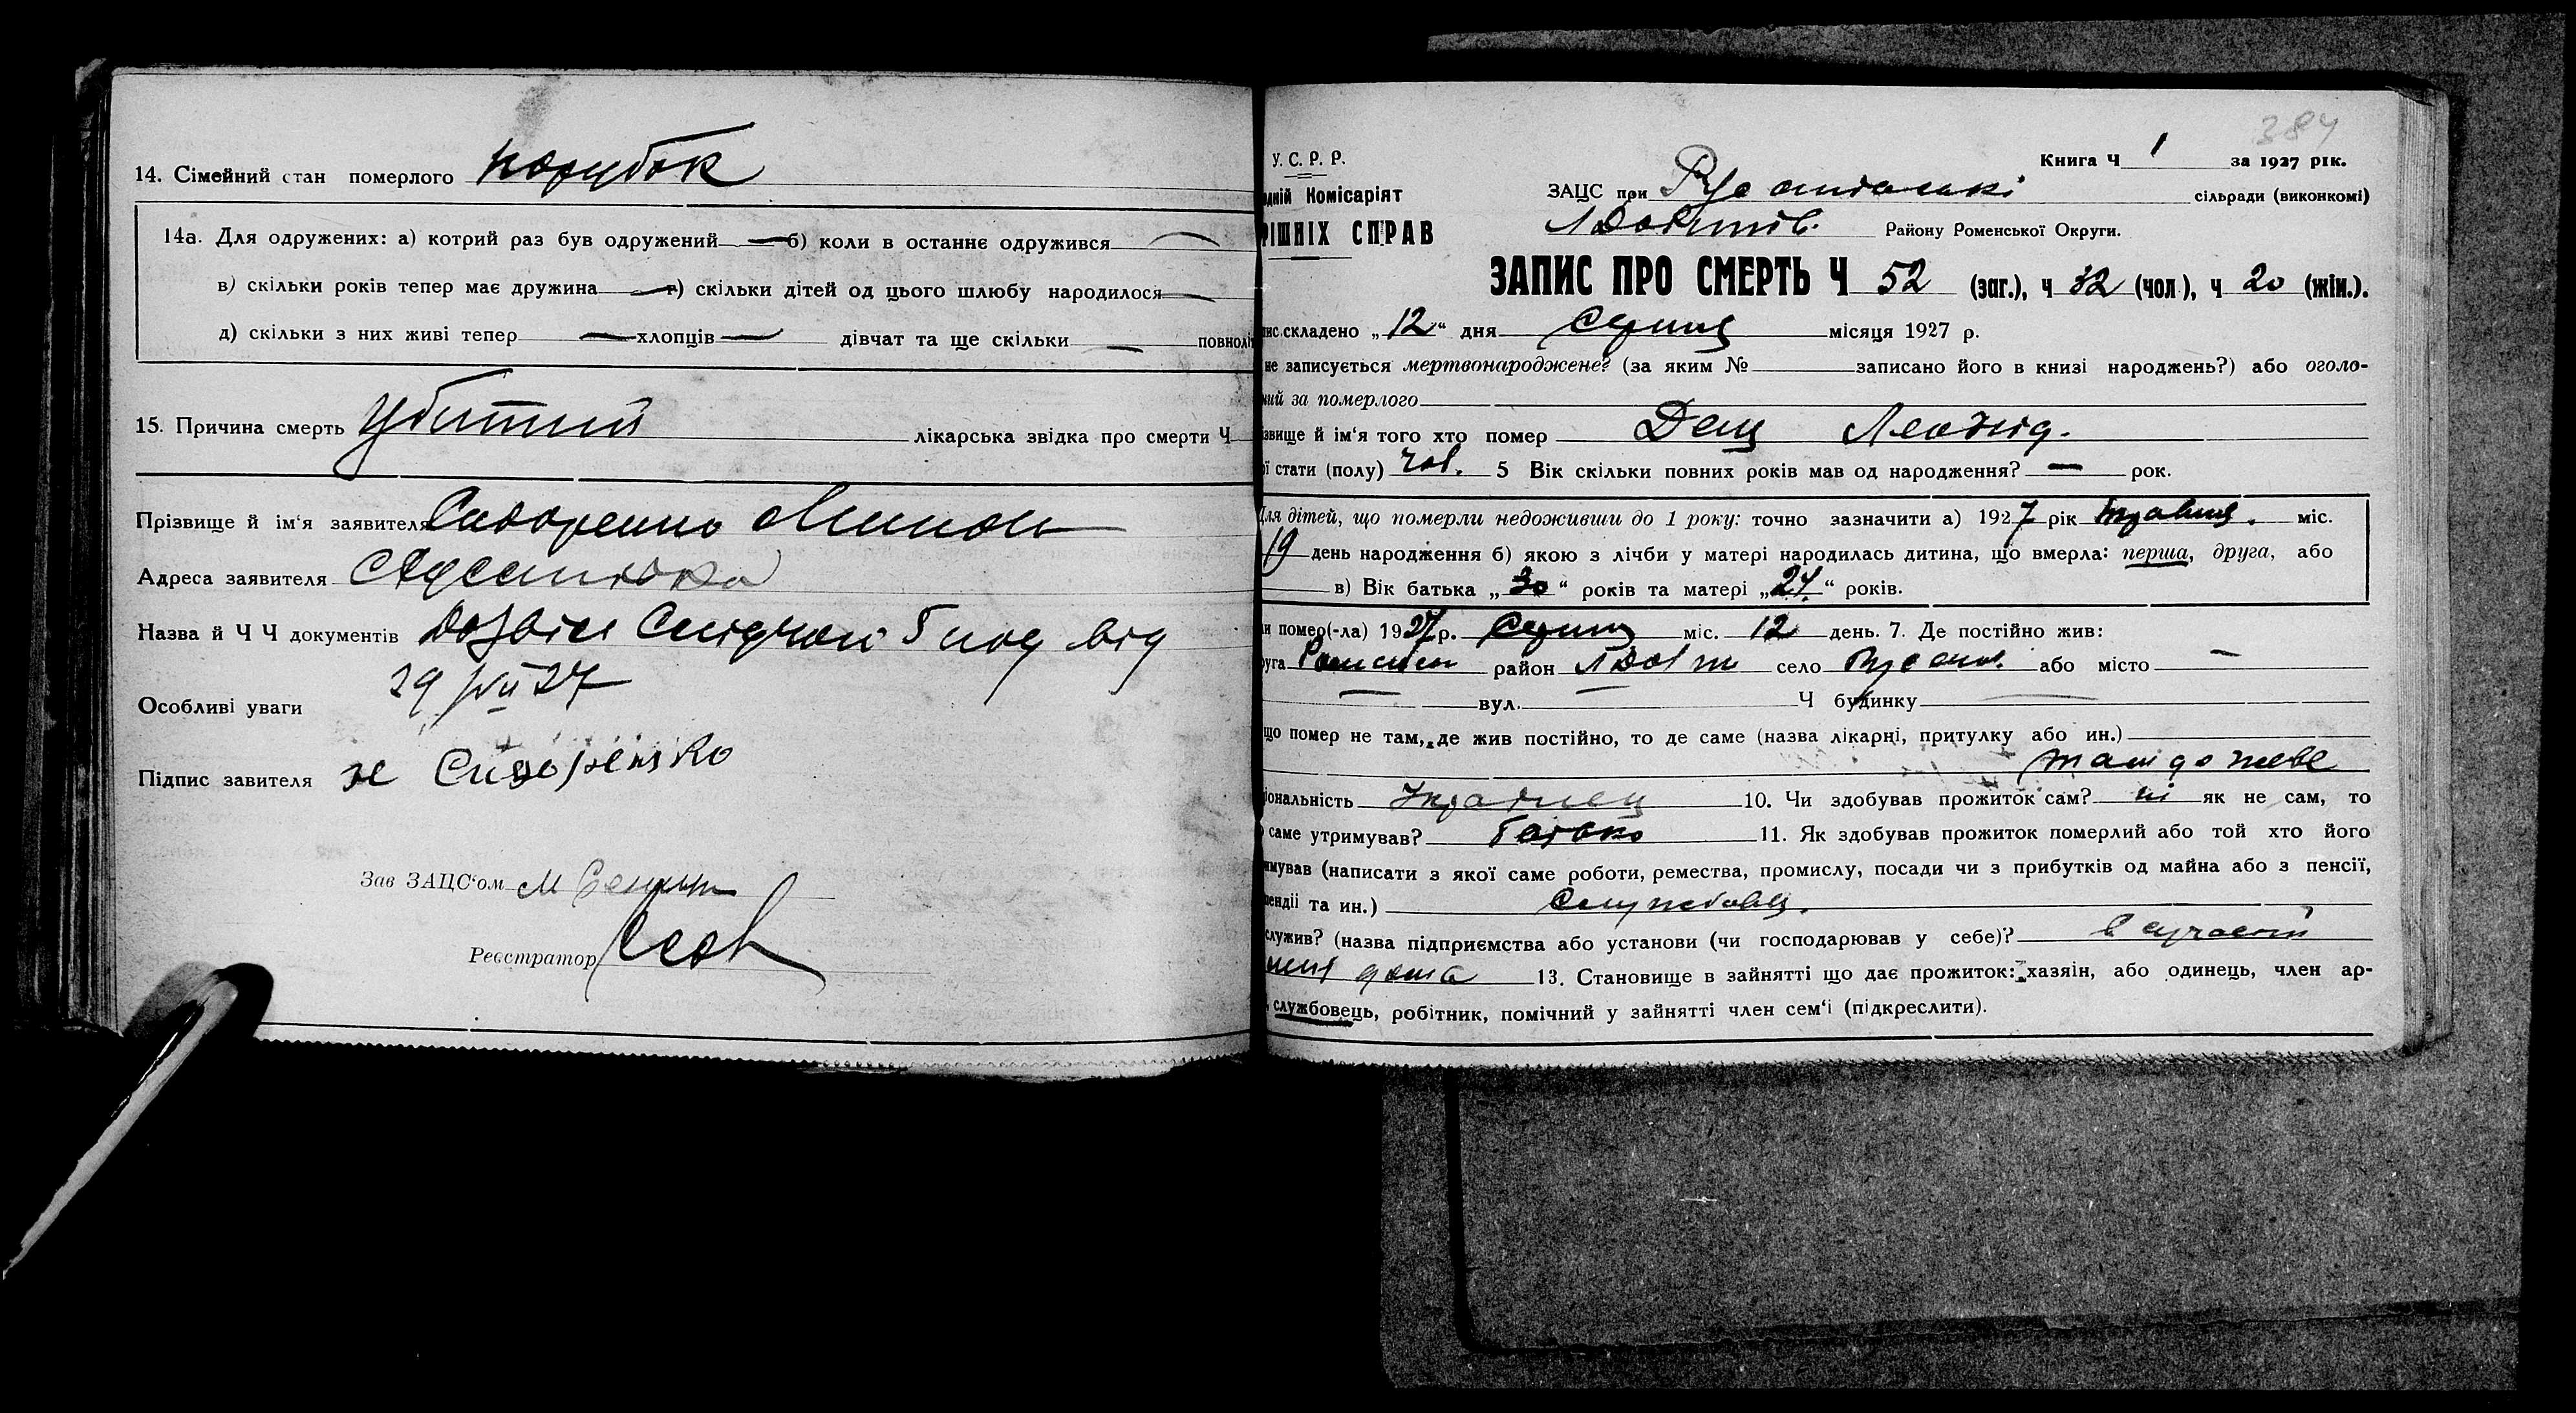 14. Сімейний стан померлого парубок
14а. Для одружених: а) котрий раз був одружений — б) коли в останнє одружився —
в) скільки років тепер має дружина — г) скільки дітей од цього шлюбу народилося —
д) скільки з них живі тепер — хлопців — дівчат та ще скільки — повноліт
15. Причина смерть убитий лікарська звідка про смерти Ч
Прізвище й ім'я заявителя Сидоренко
Адреса заявителя
Назва й Ч Ч документів Дозвіл від
29/VII 27
Особливі уваги
Підпис завителя Сидоренко
Зав ЗАЦС'ом М
Реєстратор
384
У. С. Р. Р.
Книга Ч 1 за 1927 рік.
одній Комісаріят
ЗАЦС при сільради (виконкомі)
РІШНІХ СПРАВ
Району Роменської Округи.
ЗАПИС ПРО СМЕРТЬ Ч 52 (заг.), ч 32 (чол), ч 20 (жін.).
пис складено „12“ дня Серпня місяця 1927 р.
не записується мертвонароджене? (за яким № записано його в книзі народжень?) або оголо-
ний за померлого
звище й ім'я того хто помер Дец Леонід.
ої стати (полу) чол. 5 Вік скільки повних років мав од народження? — рок.
Для дітей, що померли недоживши до 1 року: точно зазначити а) 1927 рік травня. міс.
19 день народження б) якою з лічби у матері народилась дитина, що вмерла: перша, друга, або
в) Вік батька „30“ років та матері „24“ років.
ли помер(-ла) 1927 р. Серпня міс. 12 день. 7. Де постійно жив:
руга район село або місто —
— вул. — Ч будинку —
що помер не там, де жив постійно, то де саме (назва лікарні, притулку або ин.)
там де живе
іональність Українец 10. Чи здобував прожиток сам? ні як не сам, то
о саме утримував? батько 11. Як здобував прожиток померлий або той хто його
имував (написати з якої саме роботи, ремества, промислу, посади чи з прибутків од майна або з пенсії,
пендії та ин.) Службовец.
служив? (назва підприємства або установи (чи господарював у себе)? в сучасний
дома 13. Становище в зайнятті що дає прожиток: хазяін, або одинець, член ар-
, службовець, робітник, помічний у зайнятті член сем'і (підкреслити).